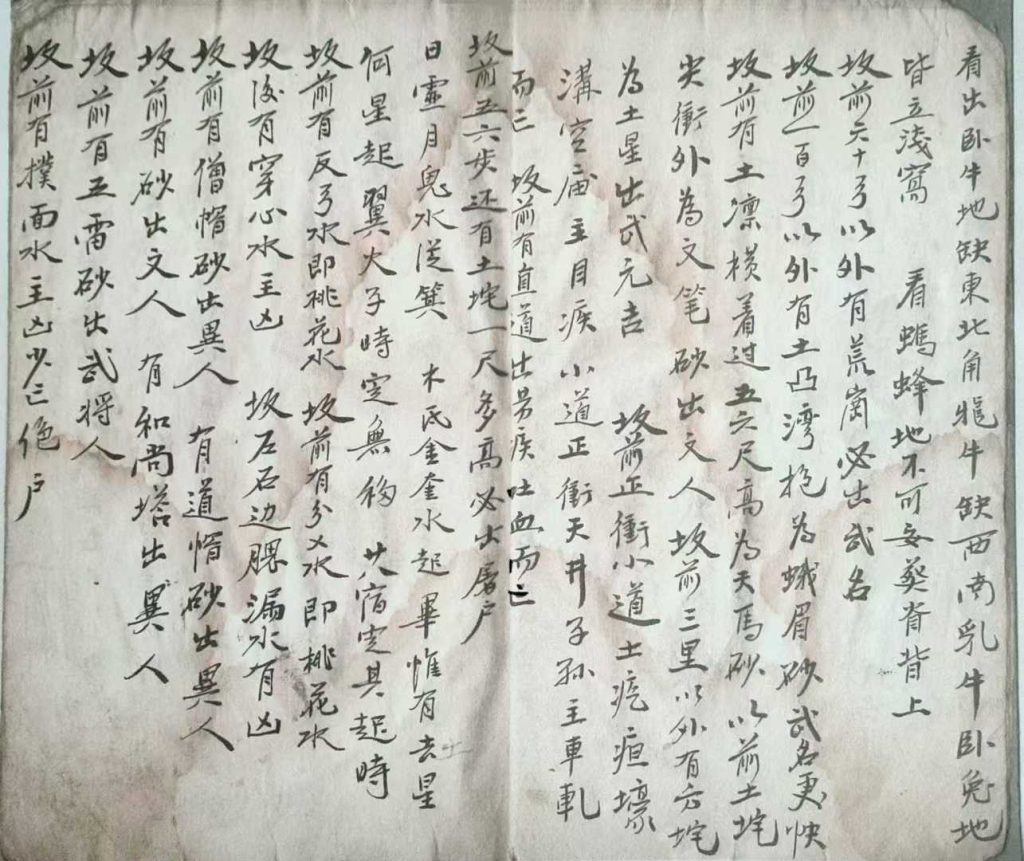 看出卧牛地缺東北角 牤牛缺西南乳牛卧兔地
皆立淺窩 看螞蜂地不可妄葵脊背上
坟前六十弓以外有荒崗必出武名
坟前一百弓以外有土凸湾抱為蛾眉砂武名更快
坟前有土凛横着过五六尺高為天馬砂以前土垞
尖衝外為文笔砂出文人 坟前三里以外有方垞
為土星出武元吉 坟前正衝小道土疙疸壕
溝空庙主目疾小道正衝天井子孫主車軋
而亡 坟前有直道出劳疾吐血而亡
坟前五六步还有土垞一尺多高必出屠户
日虚月鬼水從箕 木氏金奎水起畢惟有土星
何星起翼火子時定無移 廿宿定其起時
坟前有反弓水即桃花水 坟前有分乂水即桃花水
坟後有穿心水主凶 坟左右边腮漏水有凶
坟前有僧帽砂出異人 有道帽砂出異人
坟前有砂出文人 有和尚塔出異人
坟前有五雷砂出武將人
坟前有撲面水主凶少亡絶户